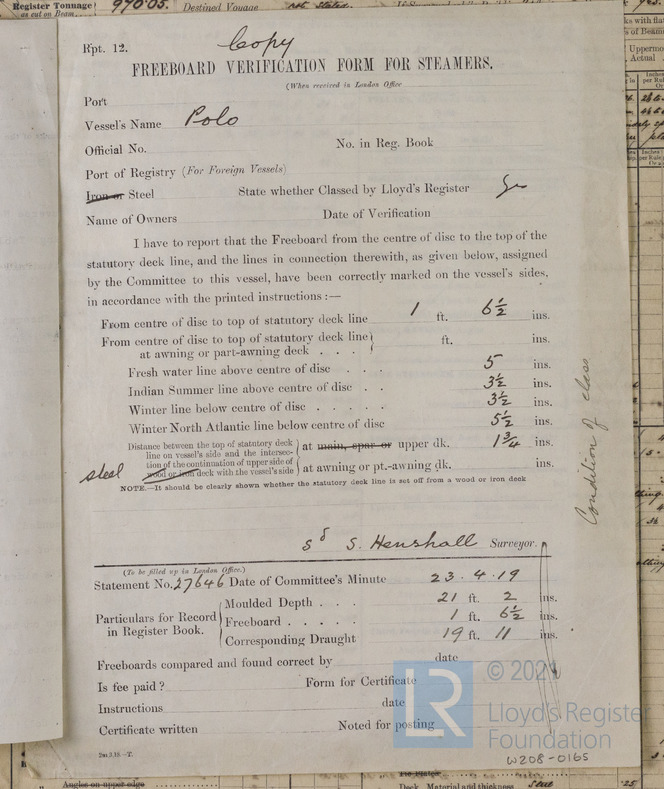 Register Tonnage as cut on Beam 990.05 Destined Voyage not stated.
Copy
Rpt. 12.
FREEBOARD VERIFICATION FORM FOR STEAMERS.
(When received in London Office
Port
Vessel's Name Polo
Official No. No. in Reg. Book
Port of Registry (For Foreign Vessels)
Iron or Steel State whether Classed by Lloyd's Register Yes
Name of Owners Date of Verification
I have to report that the Freeboard from the centre of disc to the top of the
statutory deck line, and the lines in connection therewith, as given below, assigned
by the Committee to this vessel, have been correctly marked on the vessel's sides,
in accordance with the printed instructions :—
From centre of disc to top of statutory deck line 1 ft. 6½ ins.
From centre of disc to top of statutory deck line
at awning or part-awning deck . . . ft. ins.
Fresh water line above centre of disc . . . 5 ins.
Indian Summer line above centre of disc . . 3½ ins.
Winter line below centre of disc . . . . . 3½ ins.
Winter North Atlantic line below centre of disc 5½ ins.
Distance between the top of statutory deck
line on vessel's side and the intersec- at main, spar or upper dk. 1¾ ins.
tion of the continuation of upper side of
steel wood or iron deck with the vessel's side at awning or pt.-awning dk. ins.
NOTE.—It should be clearly shown whether the statutory deck line is set off from a wood or iron deck
Condition of class
Sd S. Henshall Surveyor.
(To be filled up in London Office.)
Statement No. 27646 Date of Committee's Minute 23.4.19
Particulars for Record in Register Book.
Moulded Depth . . . 21 ft. 2 ins.
Freeboard . . . . . 1 ft. 6½ ins.
Corresponding Draught 19 ft. 11 ins.
Freeboards compared and found correct by date
Is fee paid ? Form for Certificate
Instructions date
Certificate written Noted for posting
2m.2.19.—T.
LR
© 2021
Lloyd's Register
Foundation
W208-0165
Angles on upper edge
Tie Plates
Deck. Material and thickness Steel .25